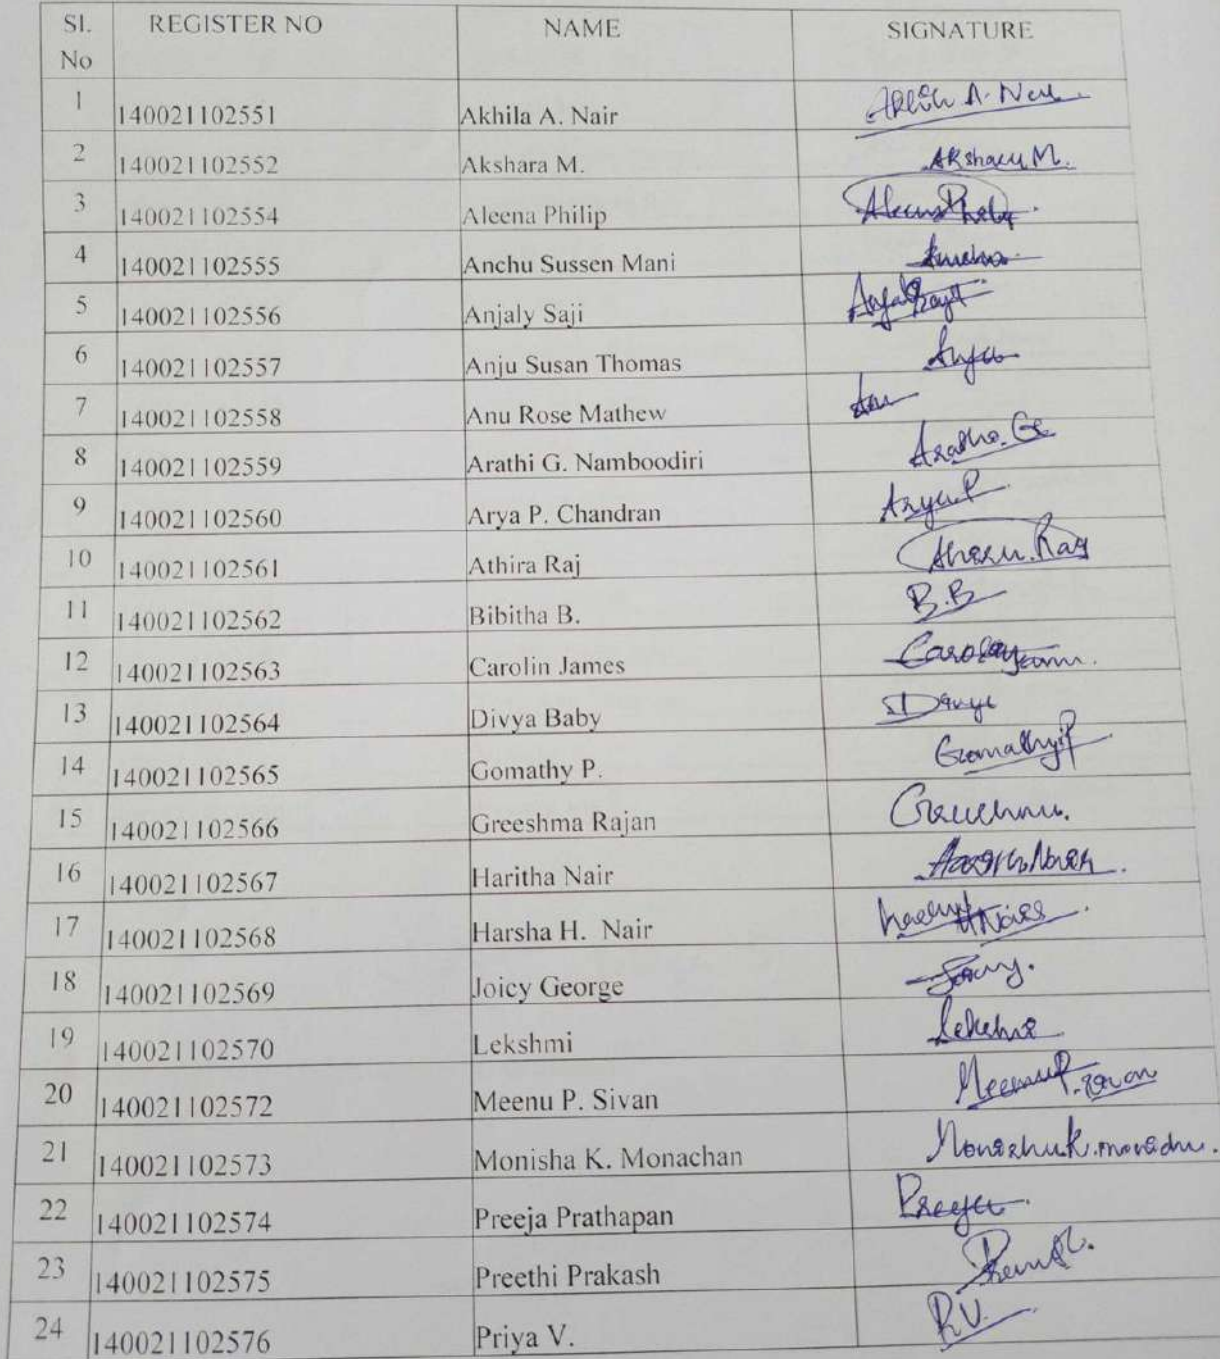 Sl. No REGISTER NO NAME SIGNATURE
1 140021102551 Akhila A. Nair
2 140021102552 Akshara M. Akshara M.
3 140021102554 Aleena Philip
4 140021102555 Anchu Sussen Mani
5 140021102556 Anjaly Saji
6 140021102557 Anju Susan Thomas
7 140021102558 Anu Rose Mathew
8 140021102559 Arathi G. Namboodiri
9 140021102560 Arya P. Chandran Arya P
10 140021102561 Athira Raj
11 140021102562 Bibitha B. B.B
12 140021102563 Carolin James
13 140021102564 Divya Baby
14 140021102565 Gomathy P. Gomathy P
15 140021102566 Greeshma Rajan
16 140021102567 Haritha Nair
17 140021102568 Harsha H. Nair
18 140021102569 Joicy George
19 140021102570 Lekshmi
20 140021102572 Meenu P. Sivan Meenu P. Sivan
21 140021102573 Monisha K. Monachan
22 140021102574 Preeja Prathapan Preeja
23 140021102575 Preethi Prakash
24 140021102576 Priya V.